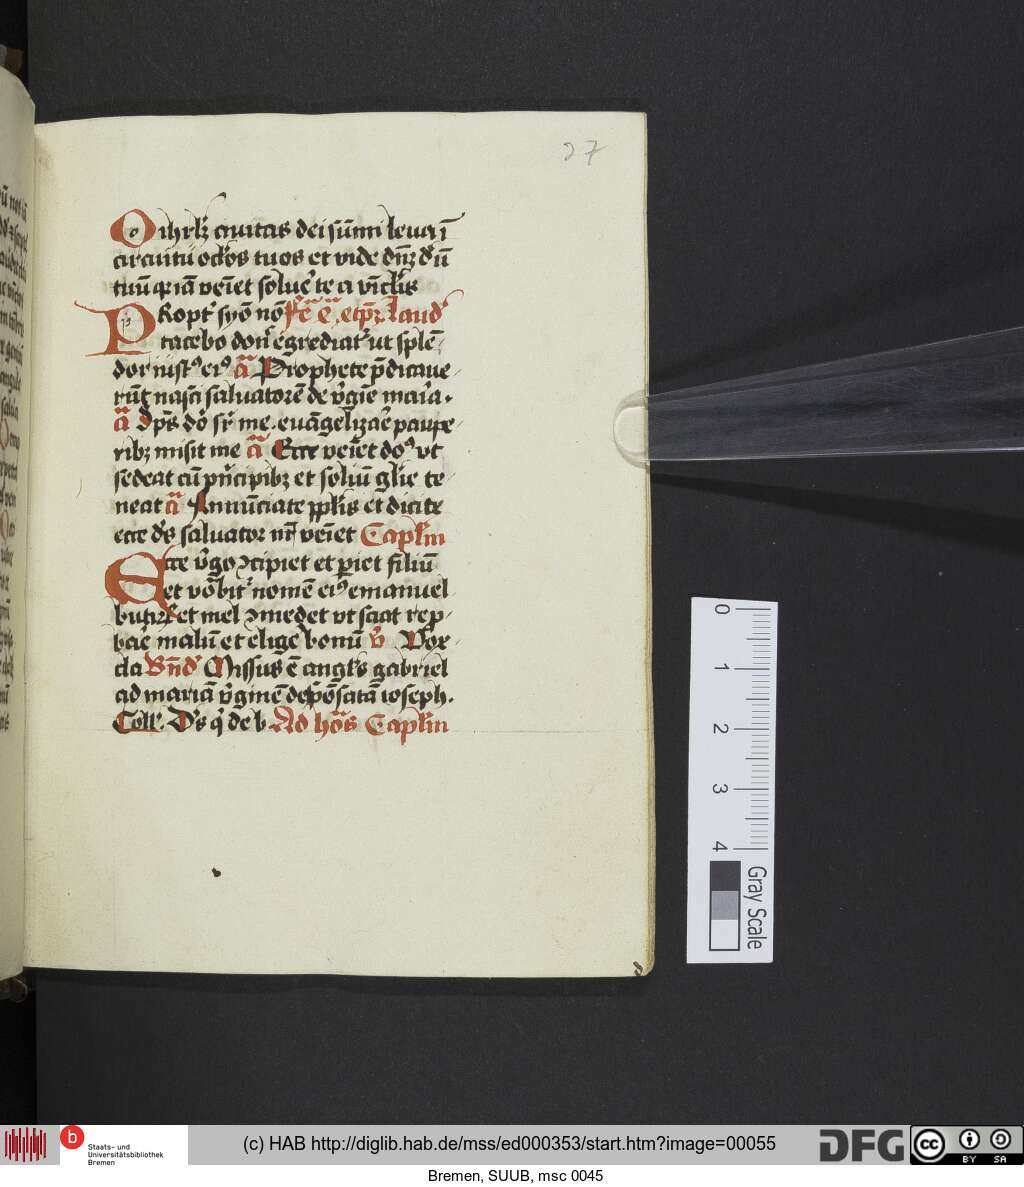 27
O ihrlꝫ ciuitas dei sūmi leua ī
circuitu oclos tuos et vide dn̄ꝫ dm̄
tuū qr iā veīet soluer te a vīclis
PRopt syō nō fc̄ ē et pꝫ laud
tacebo don egrediatr ut splē
dor iustꝰ eiꝰ a Prophete p̄dicaue
rūt nasci saluatorē de vgīe maria.
a Sps do sr me. euāgelizaē paupe
ribꝫ misit me a Ecce veīet doꝰ vt
sedeat cū pncipibꝫ et soliū glīe te
neat a Annūciate pplīs et dicite
ecce ds saluator nr̄ veīet Caplm
Ecce vgo ↄcipiet et pariet filiū
et vocbitr nomē eiꝰ emanuel
butirꝫ et mel ↄmedet vt sciat rep
baē malū et elige bonū v Vox
cla Bn̄d Missus ē angls gabriel
ad mariā vginē despōsatā ioseph.
Coll. Ds q de b Ad hōs Caplm
0
1
2
3
4
Gray Scale
b Staats- und
Universitätsbibliothek
Bremen
(c) HAB http://diglib.hab.de/mss/ed000353/start.htm?image=00055
DFG
cc BY SA
Bremen, SUUB, msc 0045